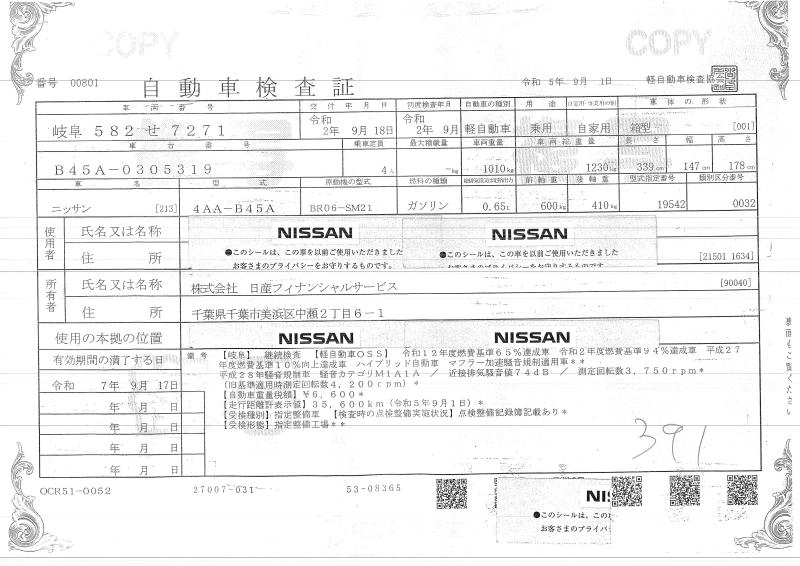 COPY COPY
番号 00801 自動車検査証 令和 5年 9月 1日 軽自動車検査協
車両番号 交付年月日 初度検査年月 自動車の種別 用途 自家用・事業用の別 車体の形状
岐阜 582 せ 7271 令和 2年 9月 18日 令和 2年 9月 軽自動車 乗用 自家用 箱型 [001]
車台番号 乗車定員 最大積載量 車両重量 車両総重量 長さ 幅 高さ
B45A-0305319 4人 -kg 1010kg 1230kg 339cm 147cm 178cm
車名 型式 原動機の型式 燃料の種類 前軸重 後軸重 型式指定番号 類別区分番号
ニッサン [213] 4AA-B45A BR06-SM21 ガソリン 0.65L 600kg 410kg 19542 0032
使用者 氏名又は名称 NISSAN NISSAN
●このシールは、この車を以前ご使用いただきました ●このシールは、この車を以前ご使用いただきました
住所 お客さまのプライバシーをお守りするものです。 お客さまのプライバシーをお守りするものです。 [21501 1634]
所有者 氏名又は名称 株式会社 日産フィナンシャルサービス [90040]
住所 千葉県千葉市美浜区中瀬2丁目6-1
使用の本拠の位置 NISSAN NISSAN
有効期間の満了する日 備考 【岐阜】 継続検査 【軽自動車OSS】 令和12年度燃費基準65%達成車 令和2年度燃費基準94%達成車 平成27
年度燃費基準10%向上達成車 ハイブリッド自動車 マフラー加速騒音規制適用車**
令和 7年 9月 17日 平成28年騒音規制車 騒音カテゴリM1A1A / 近接排気騒音値74dB / 測定回転数3,750rpm*
(旧基準適用時測定回転数4,200rpm)*
年 月 日 【自動車重量税額】¥6,600*
【走行距離計表示値】35,600km(令和5年9月1日)*
年 月 日 【受検種別】指定整備車 【検査時の点検整備実施状況】点検整備記録簿記載あり*
【受検形態】指定整備工場**
年 月 日
年 月 日
391
OCR51-0052 27007-031 53-08365
NIS
●このシールは、この
お客さまのプライバシ
裏面もご覧ください